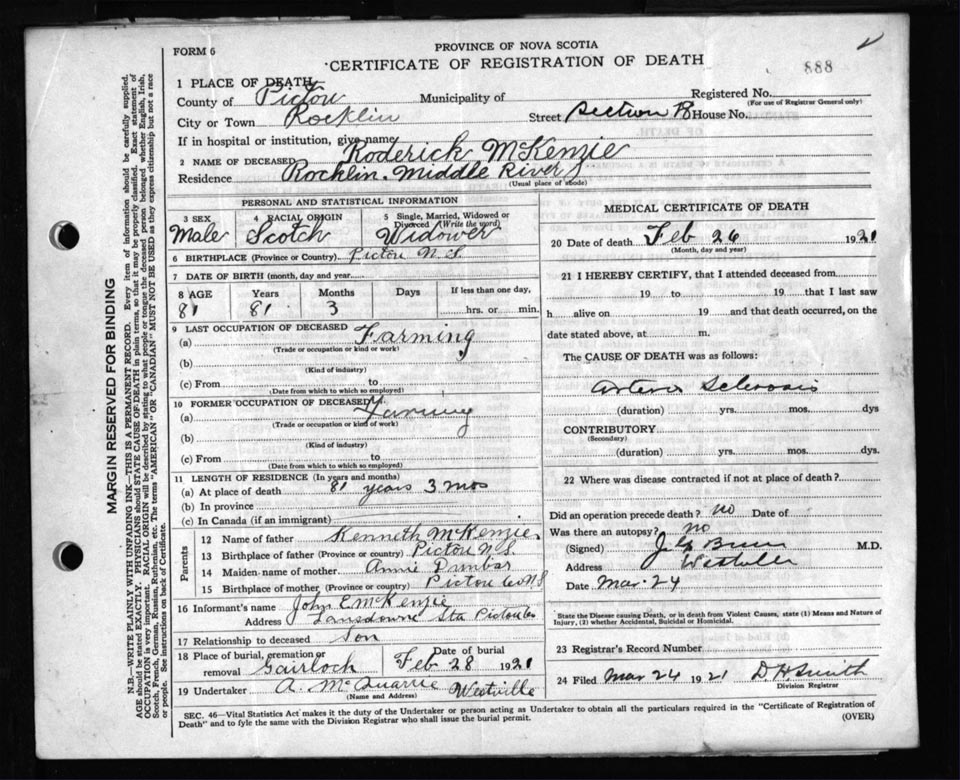 FORM 6
PROVINCE OF NOVA SCOTIA
CERTIFICATE OF REGISTRATION OF DEATH
888
1 PLACE OF DEATH
County of Pictou Municipality of Registered No.
(For use of Registrar General only)
City or Town Rocklin Street Section B House No.
If in hospital or institution, give name
2 NAME OF DECEASED Roderick McKenzie
Residence Rocklin. Middle River
(Usual place of abode)
PERSONAL AND STATISTICAL INFORMATION
3 SEX 4 RACIAL ORIGIN 5 Single, Married, Widowed or Divorced (Write the word)
Male Scotch Widower
6 BIRTHPLACE (Province or Country) Pictou N.S.
7 DATE OF BIRTH (month, day and year
8 AGE Years Months Days If less than one day,
81 81 3 hrs. or min.
9 LAST OCCUPATION OF DECEASED
(a) Farming
(Trade or occupation or kind or work)
(b)
(Kind of industry)
(c) From to
(Date from which to which so employed)
10 FORMER OCCUPATION OF DECEASED
(a) Farming
(Trade or occupation or kind of work)
(b)
(Kind of industry)
(c) From to
(Date from which to which so employed)
11 LENGTH OF RESIDENCE (In years and months)
(a) At place of death 81 years 3 mos
(b) In province
(c) In Canada (if an immigrant)
Parents
12 Name of father Kenneth McKenzie
13 Birthplace of father (Province or country) Pictou N.S.
14 Maiden-name of mother Annie Dunbar
15 Birthplace of mother (Province or country) Pictou Co N S
16 Informant's name John E McKenzie
Address Lansdowne Sta Pictou Co
17 Relationship to deceased Son
18 Place of burial, cremation or removal Gairloch Date of burial Feb 28 1921
19 Undertaker A. McQuarrie Westville
(Name and Address)
MEDICAL CERTIFICATE OF DEATH
20 Date of death Feb 26 1921
(Month, day and year)
21 I HEREBY CERTIFY, that I attended deceased from
19 to 19 that I last saw
h alive on 19 and that death occurred, on the
date stated above, at m.
The CAUSE OF DEATH was as follows:
Arterio Sclerosis
(duration) yrs. mos. dys
CONTRIBUTORY
(Secondary)
(duration) yrs. mos. dys.
22 Where was disease contracted if not at place of death?
Did an operation precede death? no Date of
Was there an autopsy? no
(Signed) M.D.
Address Westville
Date Mar. 24
State the Disease causing Death, or in death from Violent Causes, state (1) Means and Nature of Injury, (2) whether Accidental, Suicidal or Homicidal.
23 Registrar's Record Number
24 Filed Mar 24 1921 D H Smith
Division Registrar
SEC. 46—Vital Statistics Act makes it the duty of the Undertaker or person acting as Undertaker to obtain all the particulars required in the "Certificate of Registration of
Death" and to fyle the same with the Division Registrar who shall issue the burial permit.
(OVER)
MARGIN RESERVED FOR BINDING
N.B.—WRITE PLAINLY WITH UNFADING INK—THIS IS A PERMANENT RECORD. Every item of information should be carefully supplied.
AGE should be stated EXACTLY. PHYSICIANS should STATE CAUSE OF DEATH in plain terms, so that it may be properly classified. Exact statement of
OCCUPATION is very important. RACIAL ORIGIN will be described by stating to what people or tongue the deceased person belonged whether English, Irish,
Scotch, French, German, Russian, Ruthenian, etc. The terms "AMERICAN" OR "CANADIAN" MUST NOT BE USED as they express citizenship but not a race
or people. See instructions on back of Certificate.